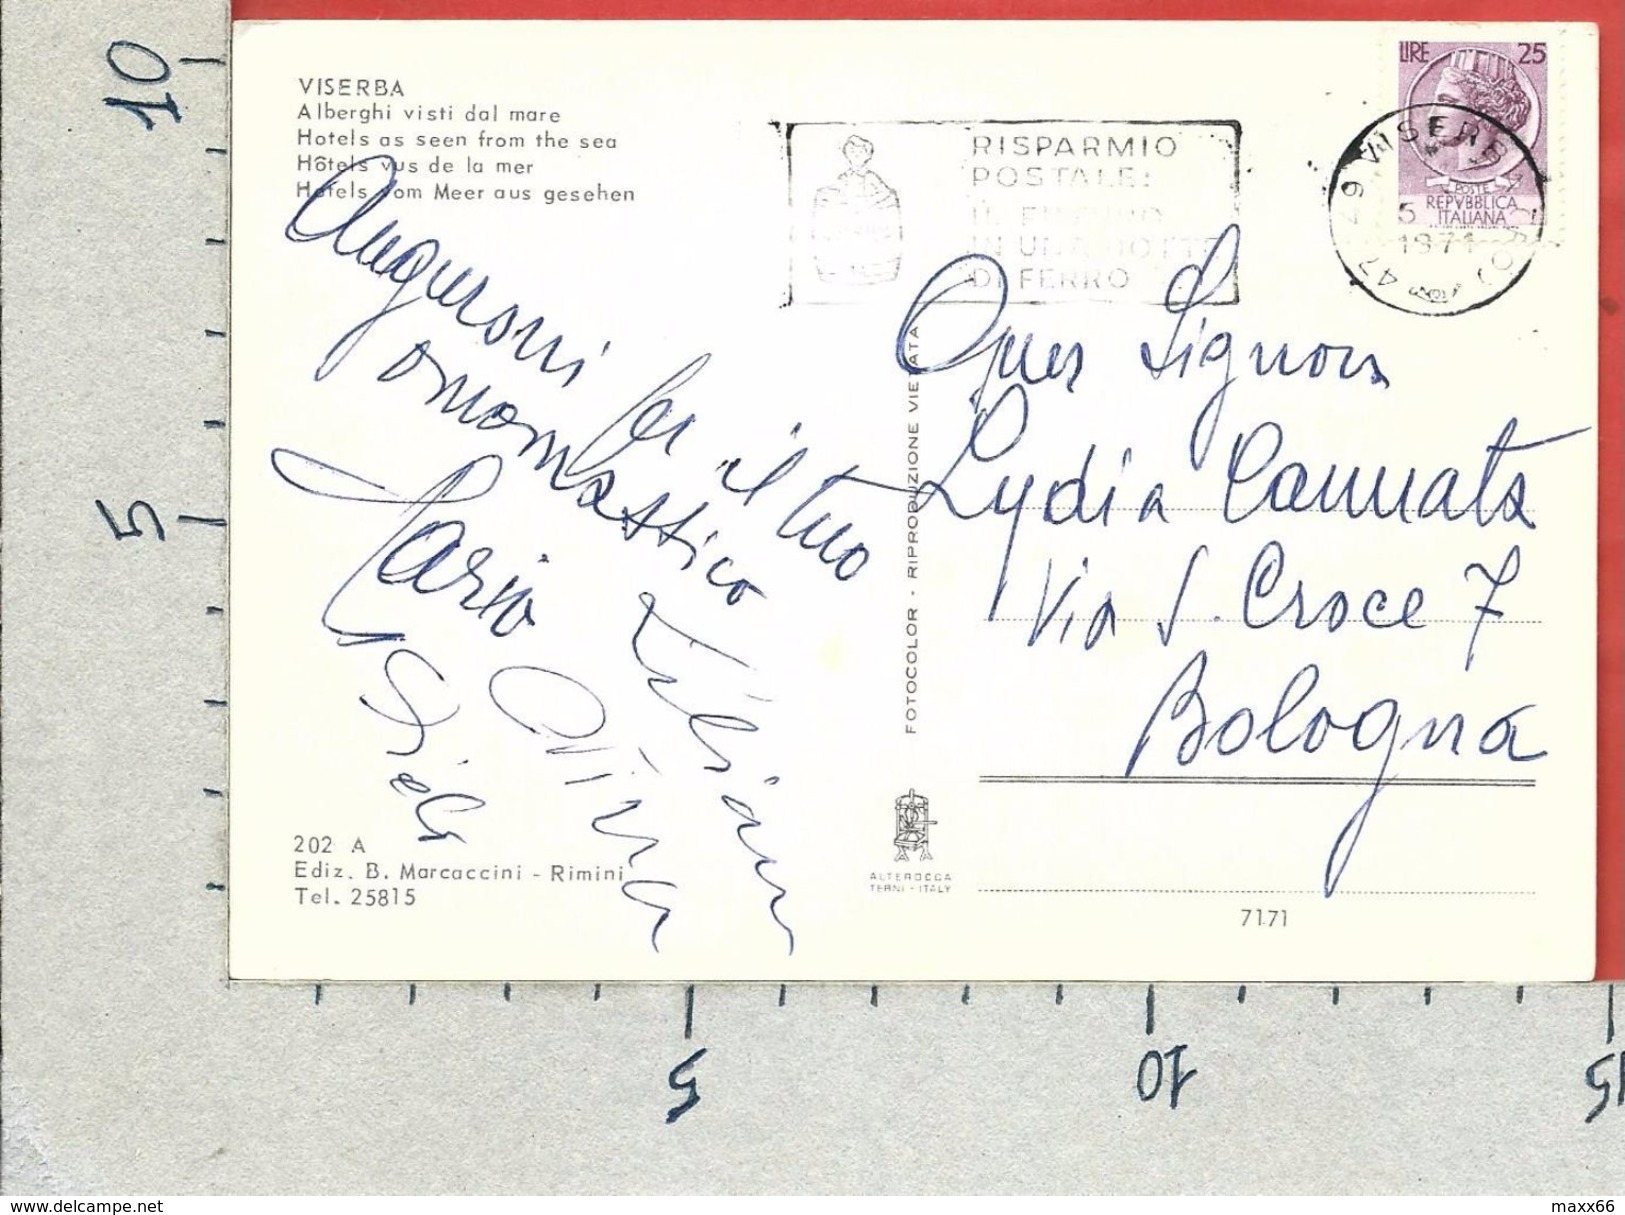 VISERBA
Alberghi visti dal mare
Hotels as seen from the sea
Hôtels vus de la mer
Hotels vom Meer aus gesehen
RISPARMIO
POSTALE:
IN UNA BOTTE
DI FERRO
LIRE 25
POSTE
REPVBBLICA
ITALIANA
1971
Auguroni per il tuo
onomastico
Mario
Liliana
Gisela
FOTOCOLOR - RIPRODUZIONE VIETATA
Lydia Cannata
Via S. Croce 7
Bologna
202 A
Ediz. B. Marcaccini - Rimini
Tel. 25815
ALTEROCCA
TERNI - ITALY
7171
10
5
5
10
15
maxx66